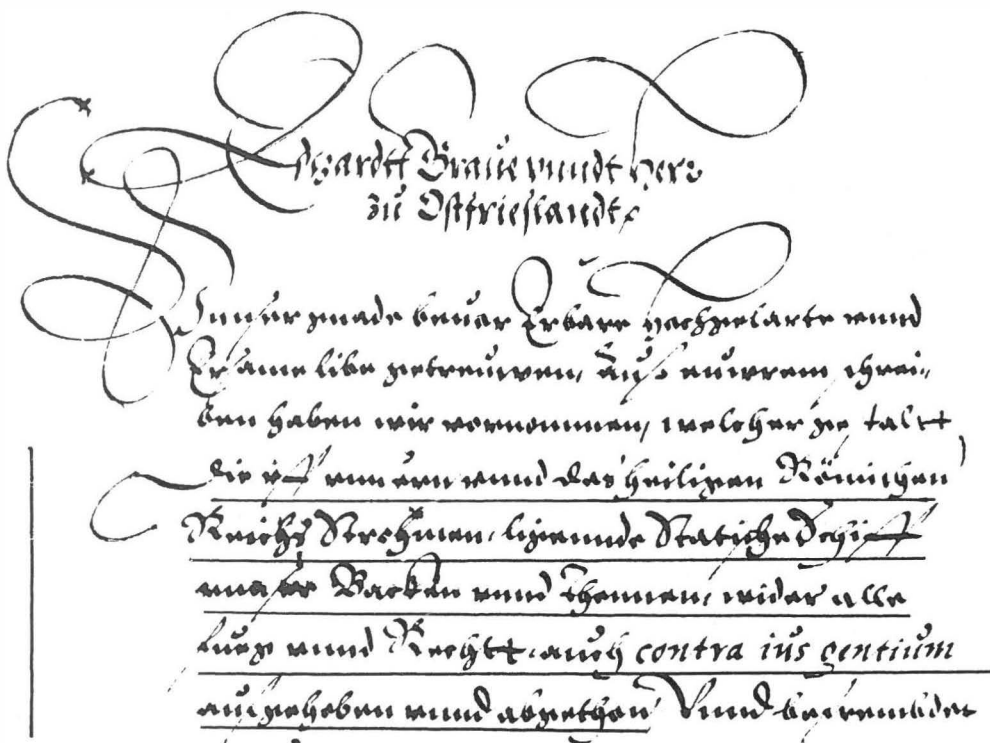 Edzardtt Graue vnndt Herr
zu Ostfrieslandt
Vnnser gnade beuor Erbare hochgelarte vnnd
Ersame libe getreuwen, Auß euwrem schrei-
ben haben wir vornommen, welcher gestaltt
die vff vnnsern vnnd des heiligen Römischen
Reichs Strohmen, ligennde Statische Schiff
vnsere Backen vnnd Thonnen, wider alle
fueg vnnd Rechtt, auch contra ius gentium
aufgehoben vnnd abgethan Vnnd befrembdet